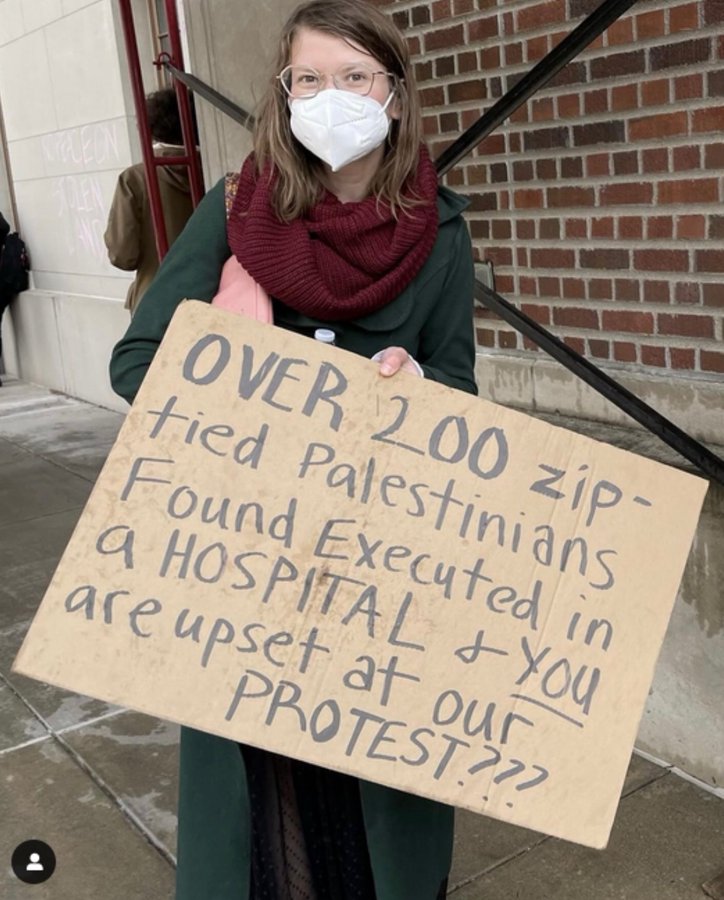 OVER 200 zip-
tied Palestinians
Found Executed in
a HOSPITAL & YOU
are upset at our
PROTEST???